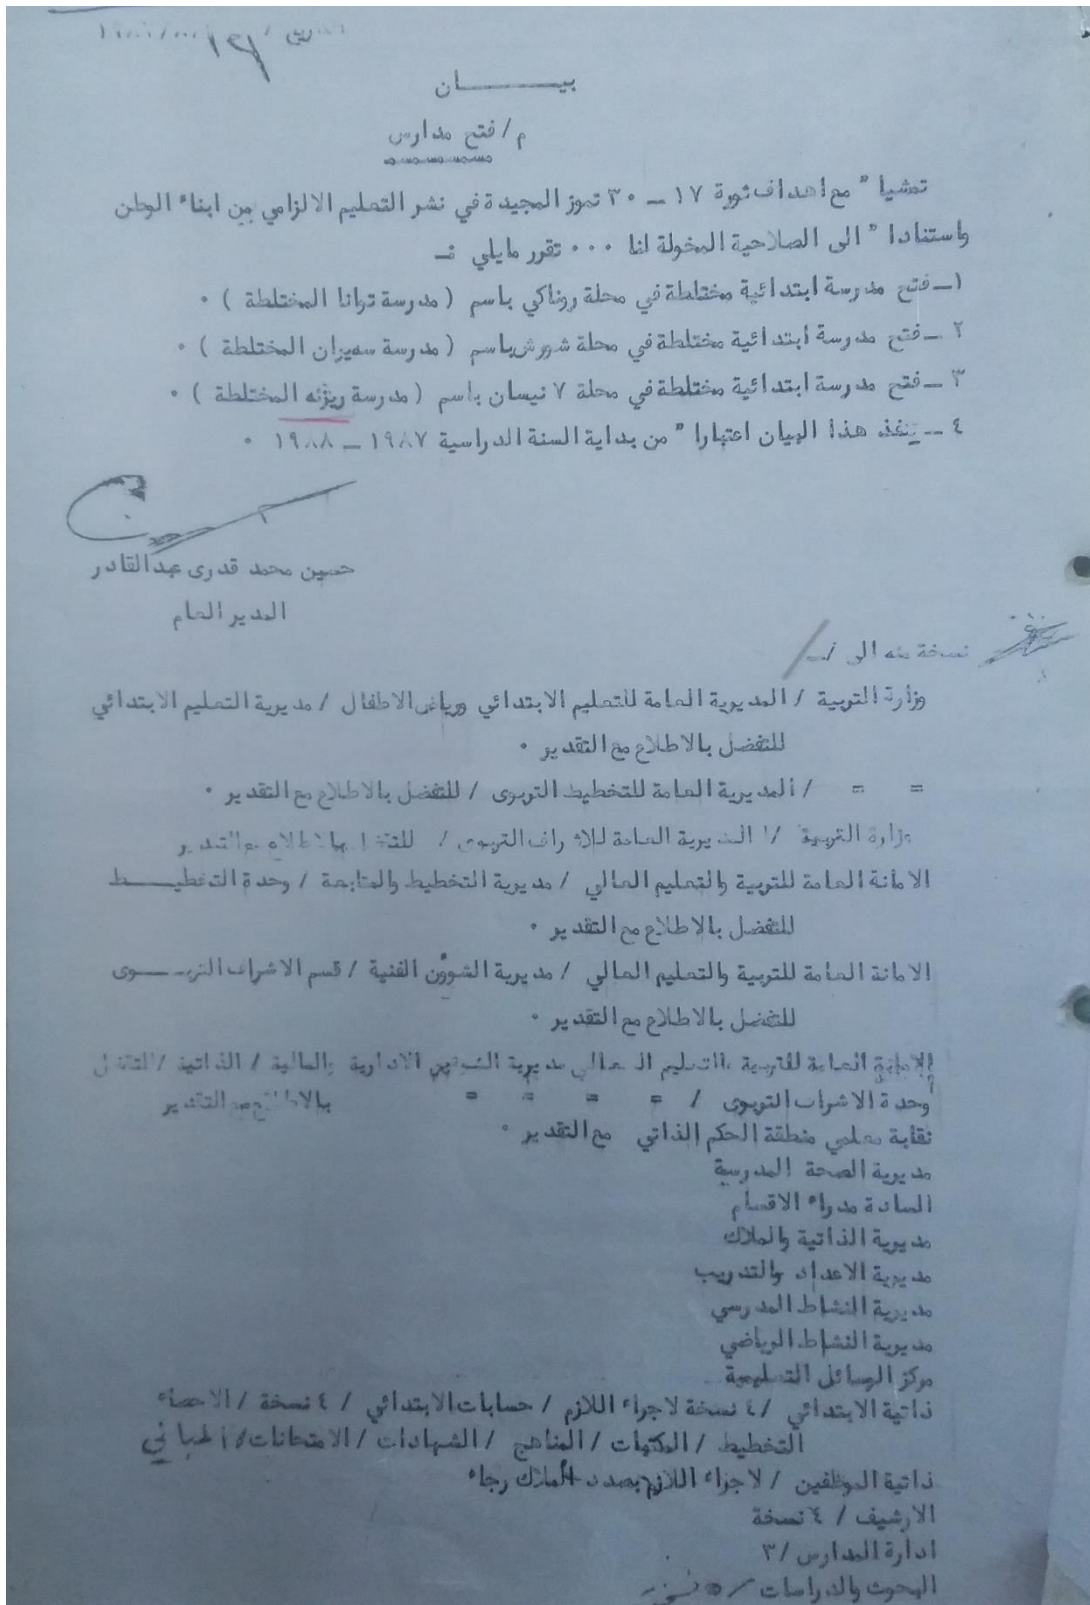 بيـــــان
م/ فتح مدارس
تمشيا " مع اهداف ثورة ١٧ ــ ٣٠ تموز المجيدة في نشر التعليم الالزامي بين ابناء الوطن
واستنادا " الى الصلاحية المخولة لنا ٠٠٠ تقرر مايلي :ـ
١ــ فتح مدرسة ابتدائية مختلطة في محلة روناكي باسم ( مدرسة توانا المختلطة ) ٠
٢ ــ فتح مدرسة ابتدائية مختلطة في محلة شورش باسم ( مدرسة سه يران المختلطة ) ٠
٣ ــ فتح مدرسة ابتدائية مختلطة في محلة ٧ نيسان باسم ( مدرسة ريژنه المختلطة ) ٠
٤ ــ ينفذ هذا البيان اعتبارا " من بداية السنة الدراسية ١٩٨٧ ــ ١٩٨٨ ٠
حسين محمد قدرى عبدالقادر
المدير العام
نسخة منه الى /ــ
وزارة التربية / المديرية العامة للتعليم الابتدائي ورياض الاطفال / مديرية التعليم الابتدائي
للتفضل بالاطلاع مع التقدير ٠
= = / المديرية العامة للتخطيط التربوى / للتفضل بالاطلاع مع التقدير ٠
وزارة التربية / المديرية العامة للاشراف التربوى / للتفضل بالاطلاع مع التقدير
الامانة العامة للتربية والتعليم العالي / مديرية التخطيط والمتابعة / وحدة التخطيـــط
للتفضل بالاطلاع مع التقدير ٠
الامانة العامة للتربية والتعليم العالي / مديرية الشوؤن الفنية / قسم الاشراف التربـــوى
للتفضل بالاطلاع مع التقدير ٠
الامانة العامة للتربية والتعليم العالي مديرية الشوؤن الادارية والمالية / الذاتية / للتفضل
وحدة الاشراف التربوى / = = = = بالاطلاع مع التقدير
نقابة معلمي منطقة الحكم الذاتي مع التقدير ٠
مديرية الصحة المدرسية
السادة مدراء الاقسام
مديرية الذاتية والملاك
مديرية الاعداد والتدريب
مديرية النشاط المدرسي
مديرية النشاط الرياضي
مركز الوسائل التعليمية
ذاتية الابتدائي / ٤ نسخة لاجراء اللازم / حسابات الابتدائي / ٤ نسخة / الاحصاء
التخطيط / المكتبات / المناهج / الشهادات / الامتحانات / المباني
ذاتية الموظفين / لاجراء اللازم بصدد الملاك رجاء
الارشيف / ٤ نسخة
ادارة المدارس / ٣
البحوث والدراسات /